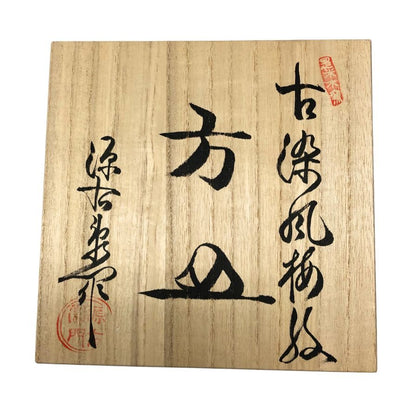 古染風梅紋
方皿
源右衛門